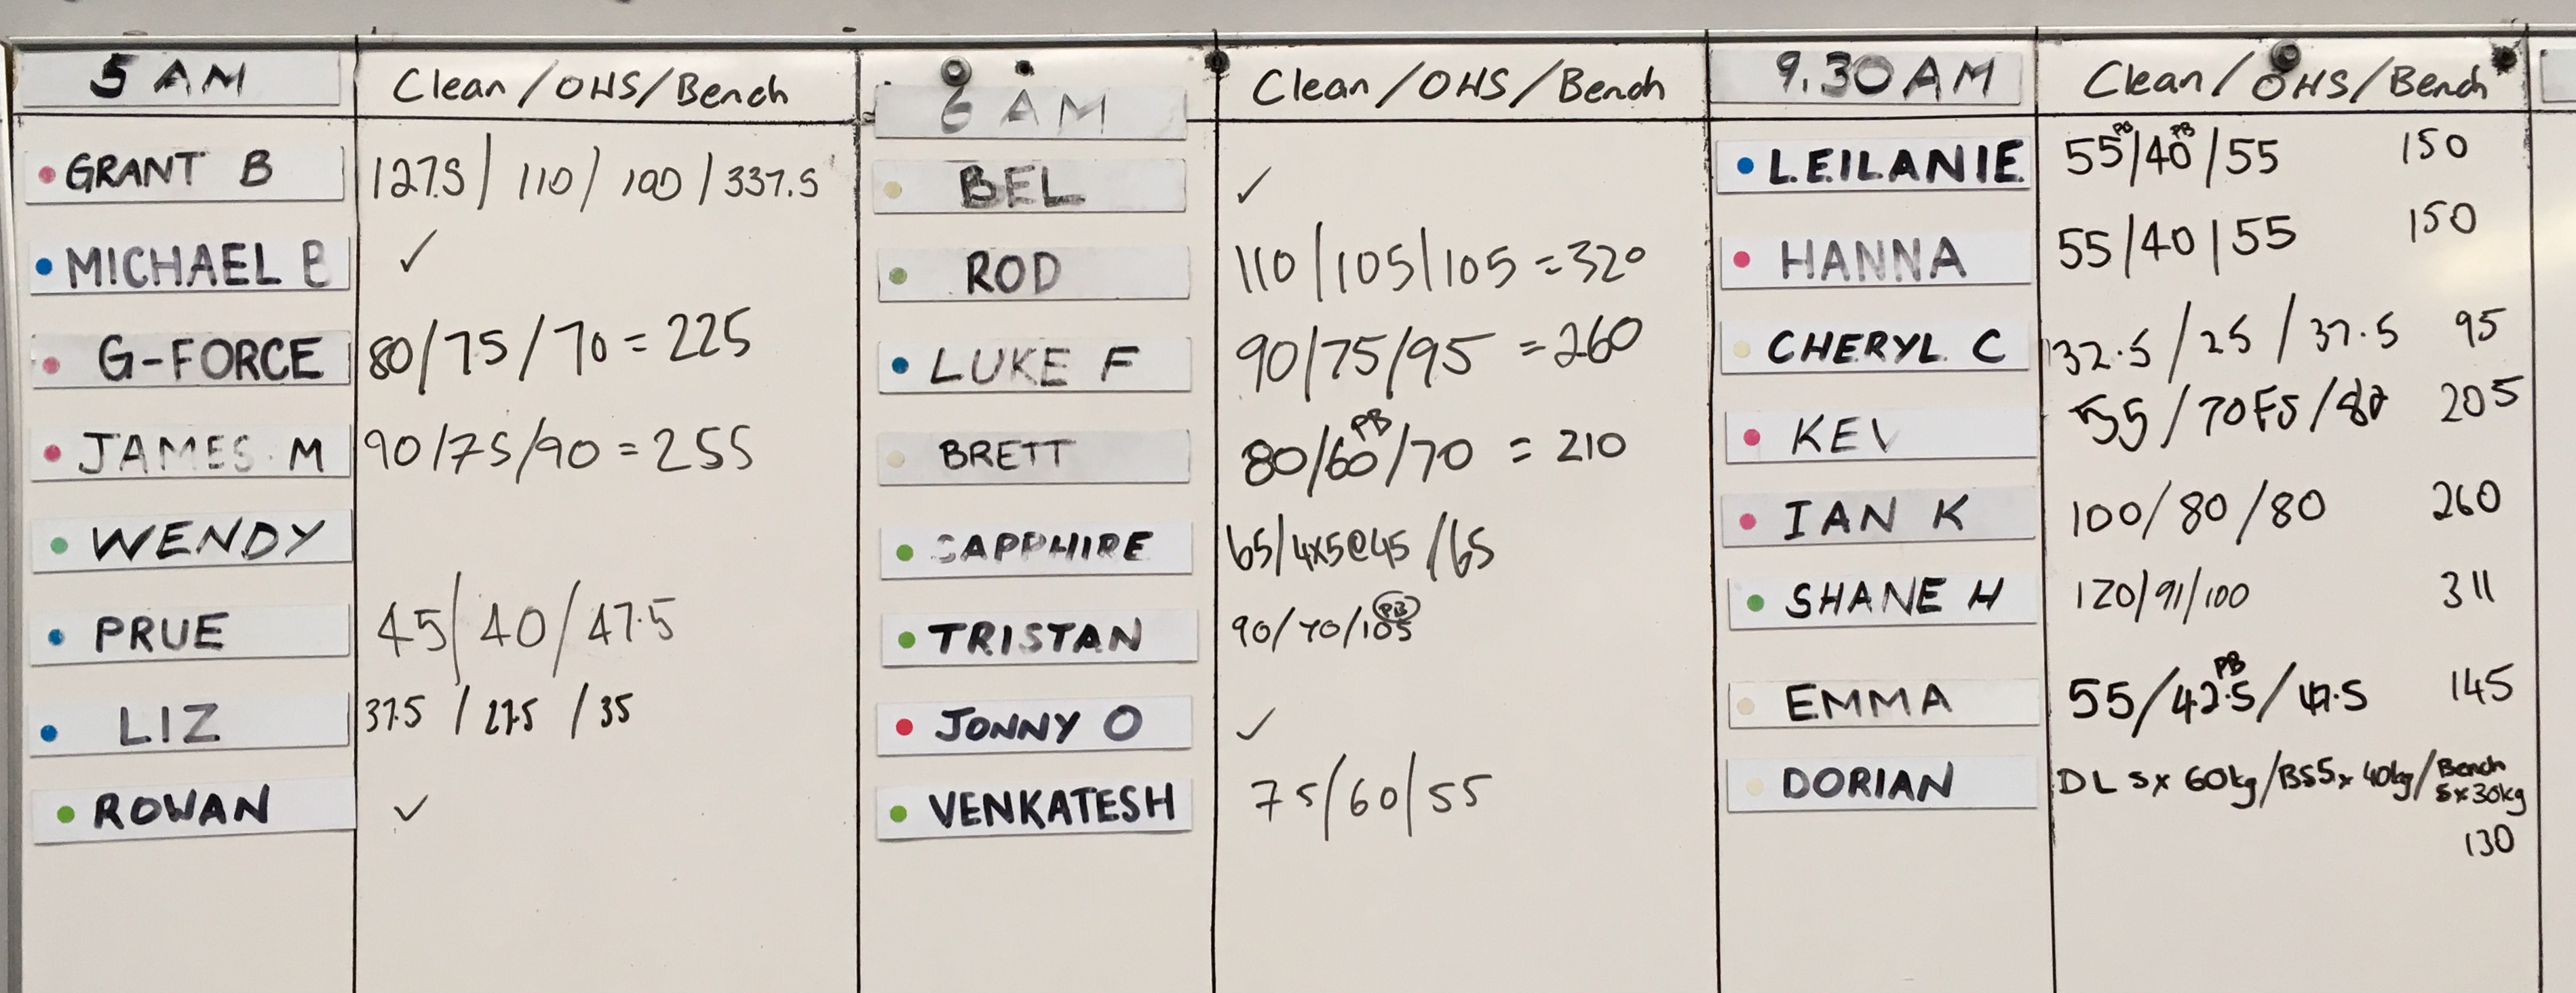 5 AM Clean/OHS/Bench
GRANT B 127.5/ 110/ 100/337.5
MICHAEL B ✓
G-FORCE 80/75/70 = 225
JAMES M 90/75/90 = 255
WENDY
PRUE 45/40/47.5
LIZ 37.5 / 27.5 / 35
ROWAN ✓
6 AM Clean/OHS/Bench
BEL ✓
ROD 110/105/105 = 320
LUKE F 90/75/95 = 260
PB
BRETT 80/60/70 = 210
SAPPHIRE 65/4x5@45/65
PB
TRISTAN 90/70/105
JONNY O ✓
VENKATESH 75/60/55
9.30AM Clean/OHS/Bench
PB PB
LEILANIE 55/40/55 150
HANNA 55/40/55 150
CHERYL C 32.5/25/37.5 95
KEV 55/70FS/80 205
IAN K 100/80/80 260
SHANE H 120/91/100 311
PB
EMMA 55/42.5/47.5 145
DORIAN DL 5x 60kg/BS5x 40kg/Bench
5x30kg
130